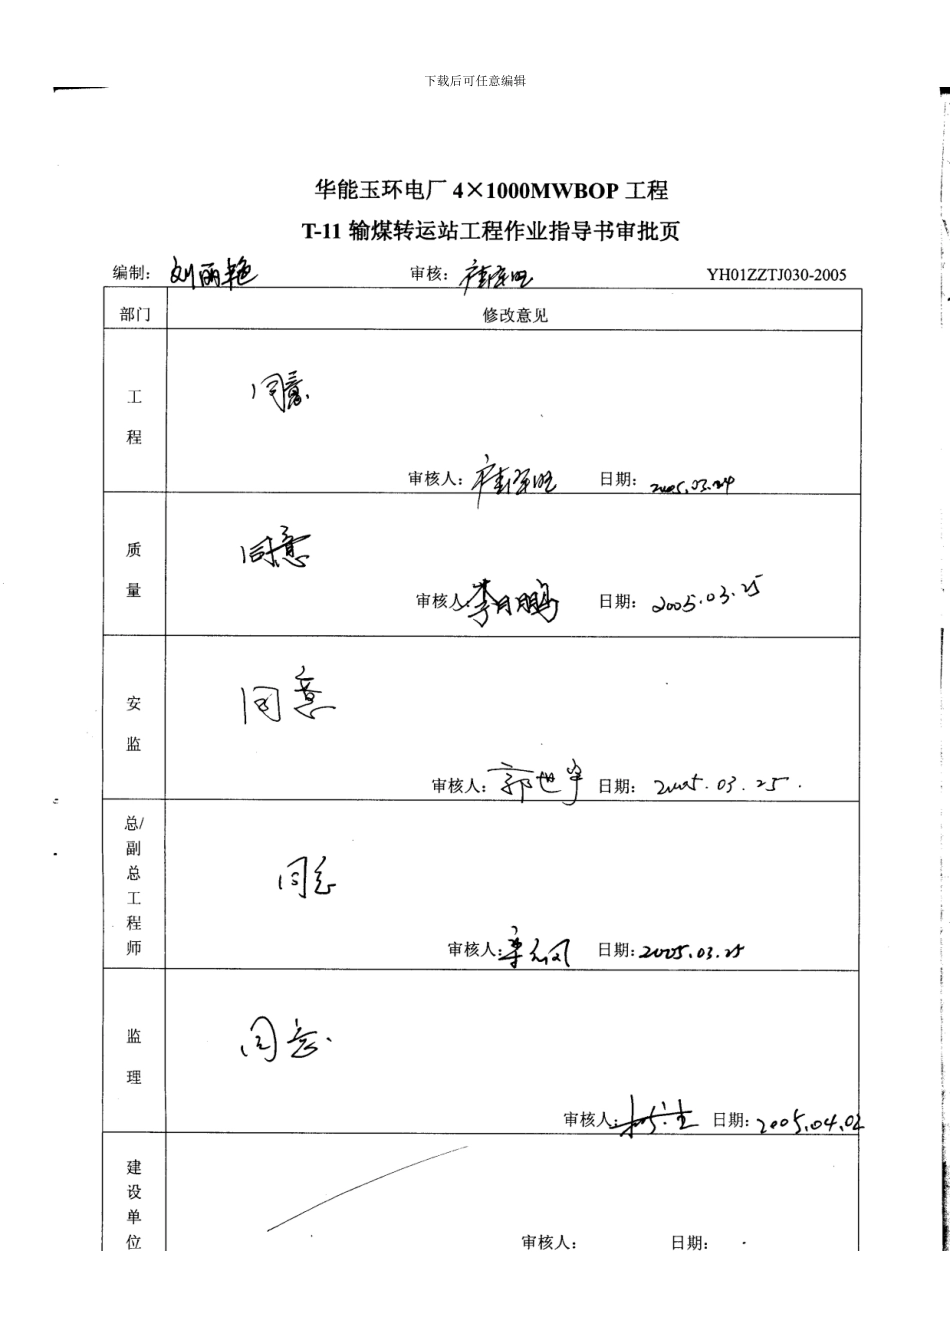 下载后可任意编辑
华能玉环电厂 4×1000MWBOP 工程
T-11 输煤转运站工程作业指导书审批页
编制: 刘丽艳 审核: YH01ZZTJ030-2005
部门 修改意见
工程 同意
审核人: 日期: 2005.03.24
质量 同意
审核人: 李月鹏 日期: 2005.03.25
安监 同意
审核人: 郭世宇 日期: 2005.03.25.
总/副总工程师 同意
审核人: 日期: 2005.03.25
监理 同意.
审核人: 日期: 2005.04.02
建设单位
审核人: 日期: